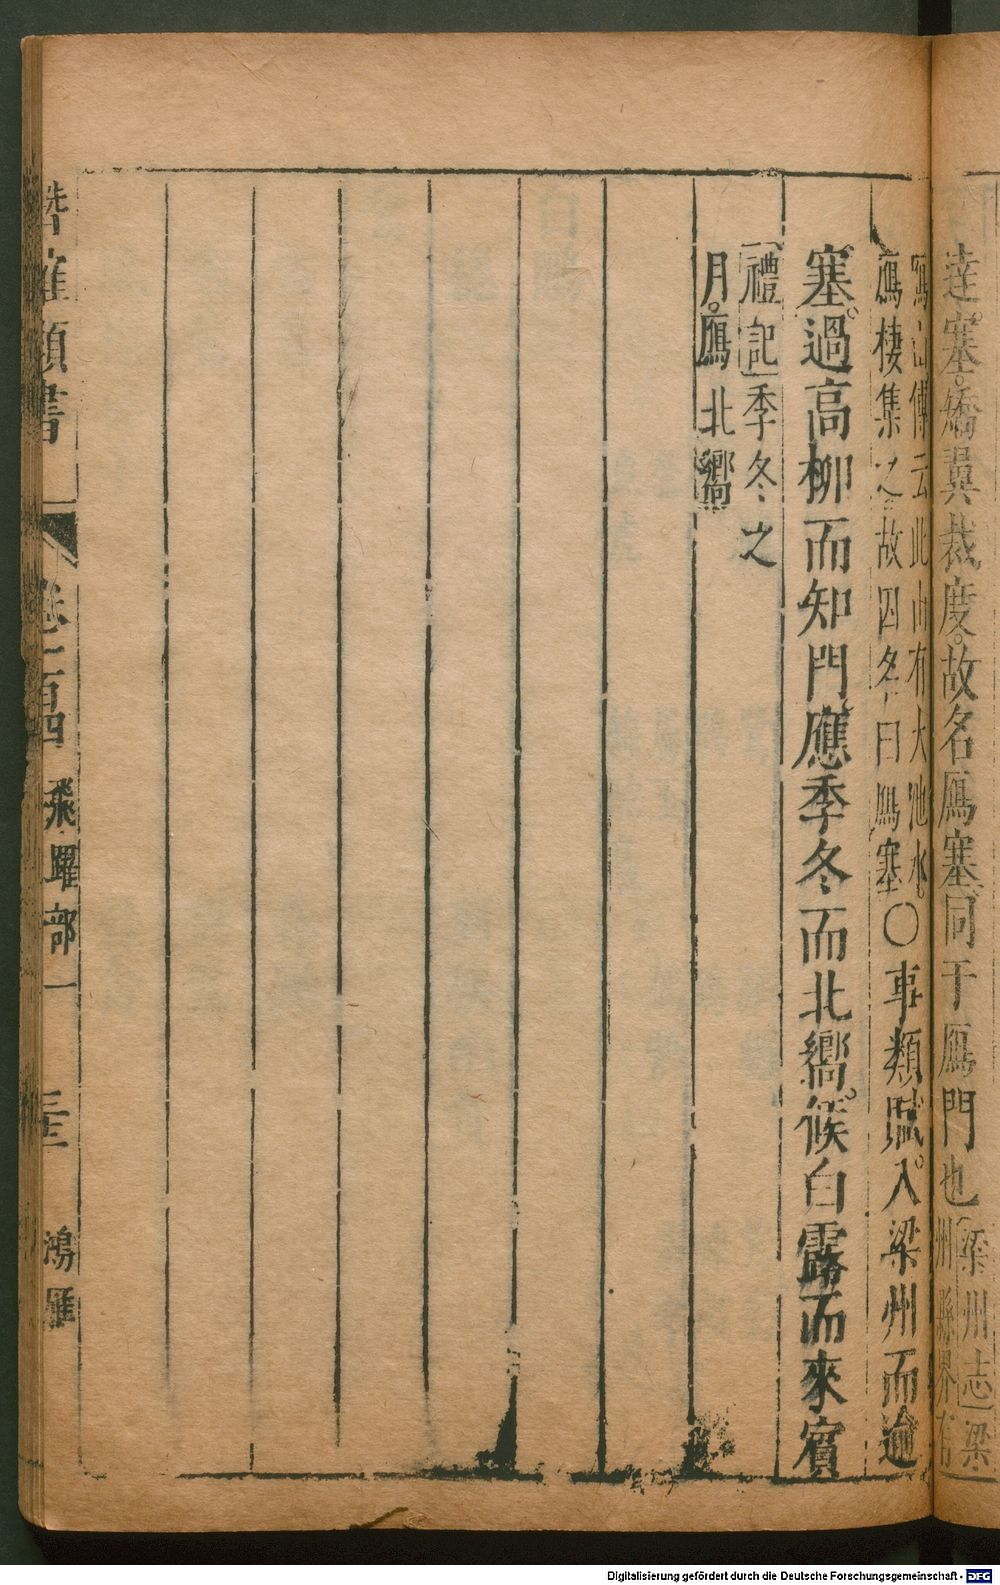 達塞。矯翼裁度。故名鴈塞。同于鴈門也
梁州志梁
州縣界有
鴈山傳云此山有大池水。
鴈棲集之故因名曰鴈塞
○事類賦。入梁州而逾
塞。過高柳而知門。應季冬而北嚮。候白露而來賓
禮記季冬之
月。鴈北嚮
類書
卷一百四
飛躍部一
鴻雁
Digitalisierung gefördert durch die Deutsche Forschungsgemeinschaft - DFG